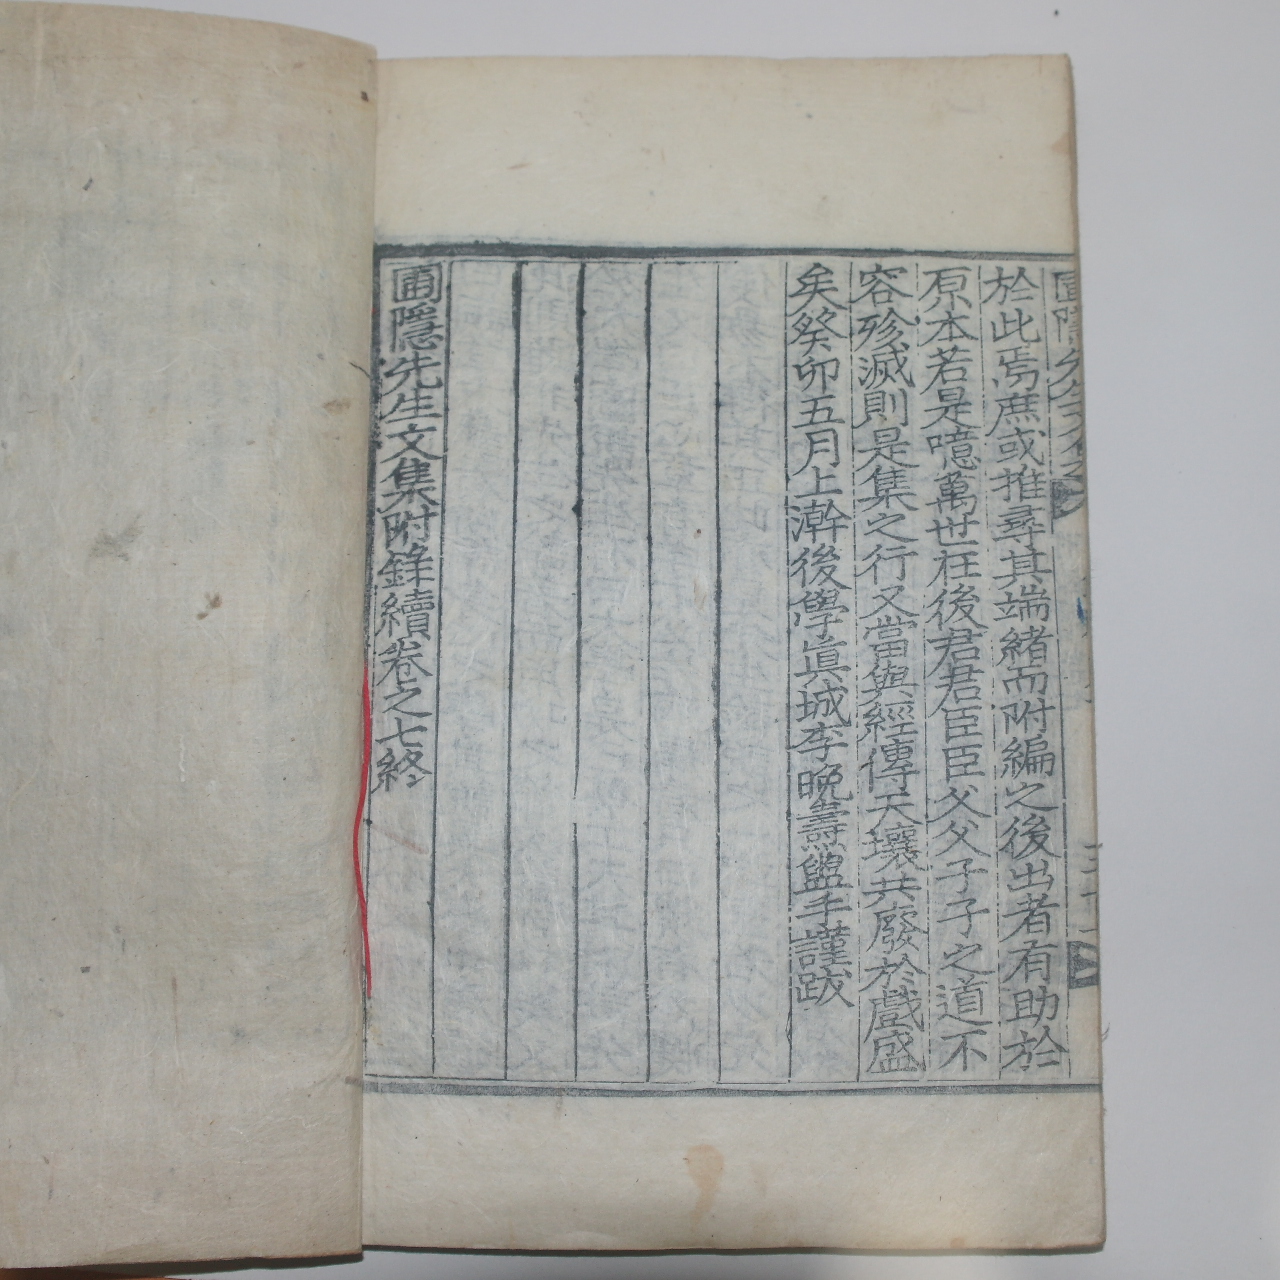 圃隱先生文集
於此焉庶或推尋其端緖而附編之後出者有助於
原本若是噫萬世在後君君臣臣父父子子之道不
容殄滅則是集之行又當與經傳天壤共廢於戲盛
矣癸卯五月上澣後學眞城李晩壽盥手謹跋
圃隱先生文集附錄續卷之七終